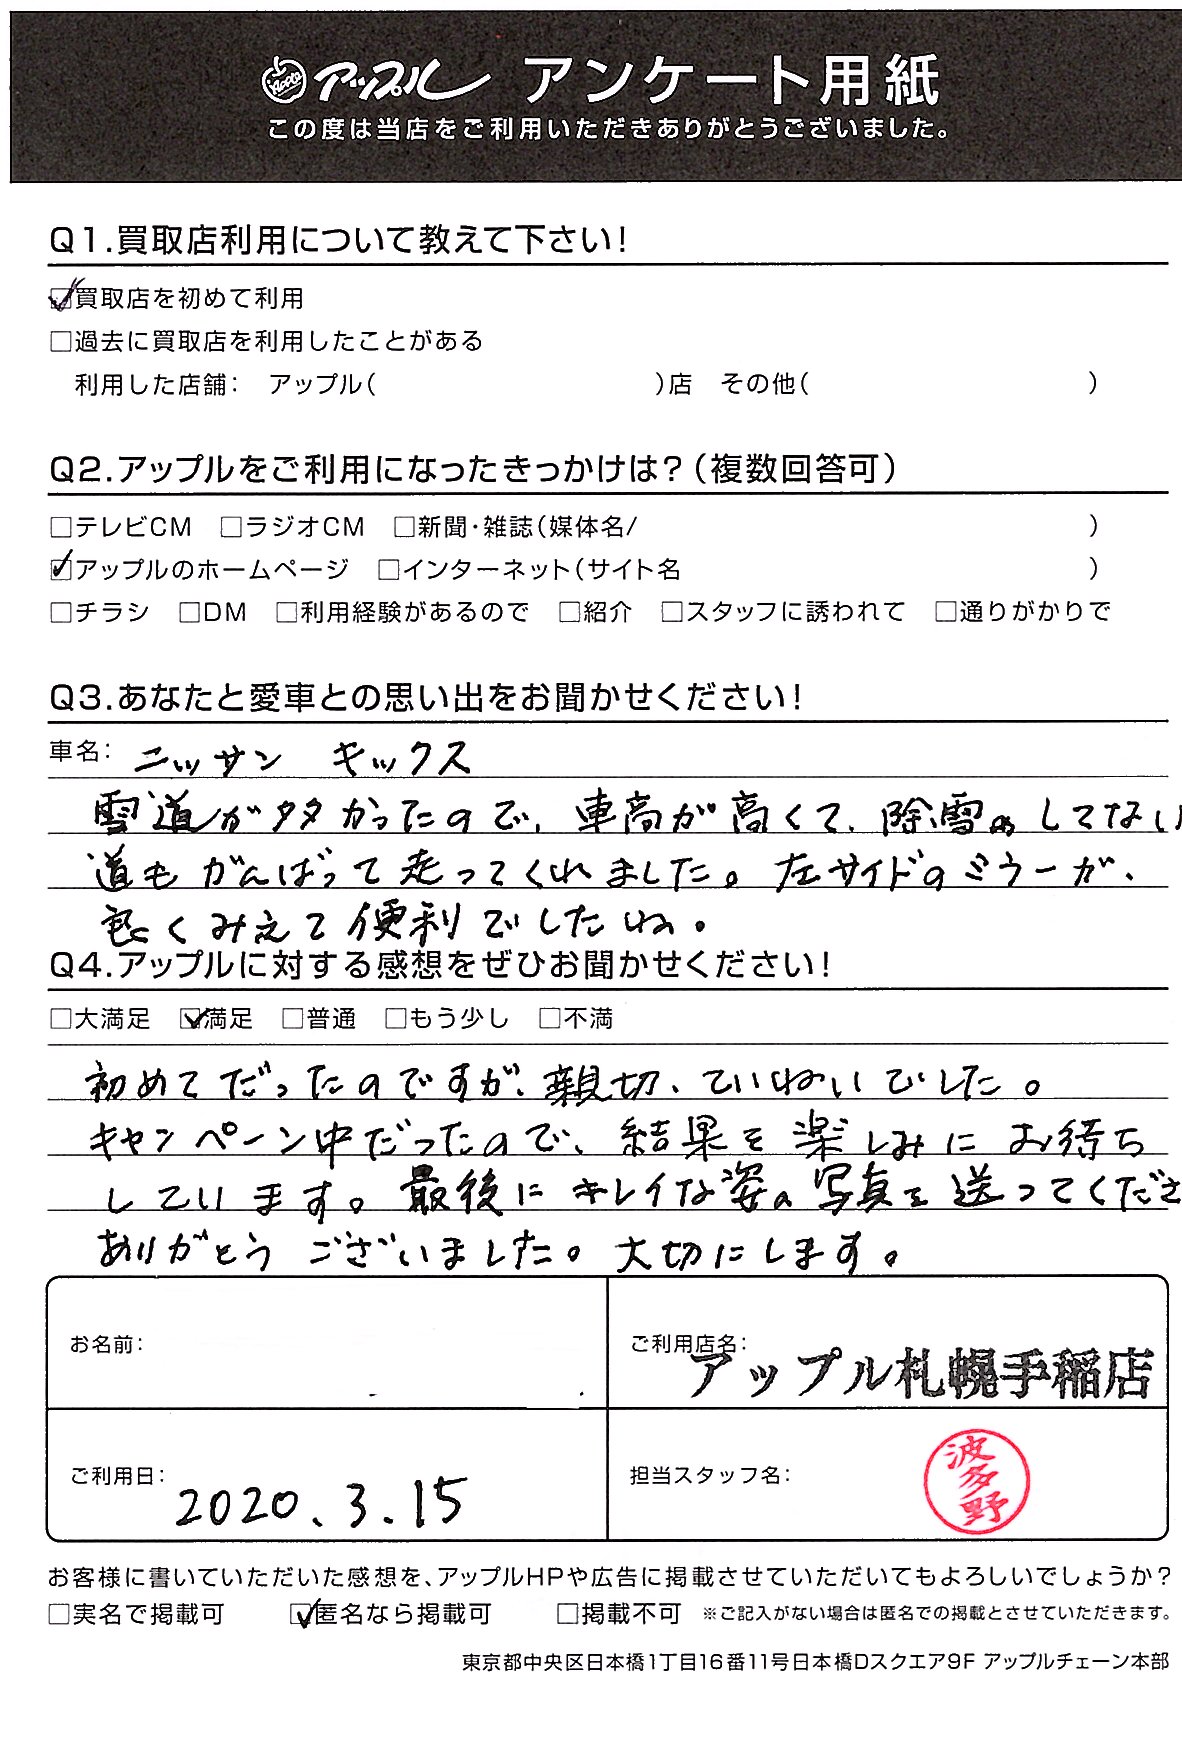 アップル アンケート用紙
この度は当店をご利用いただきありがとうございました。
Q1.買取店利用について教えて下さい!
☑買取店を初めて利用
□過去に買取店を利用したことがある
利用した店舗: アップル( )店 その他( )
Q2.アップルをご利用になったきっかけは?(複数回答可)
□テレビCM □ラジオCM □新聞・雑誌(媒体名/ )
☑アップルのホームページ □インターネット(サイト名 )
□チラシ □DM □利用経験があるので □紹介 □スタッフに誘われて □通りがかりで
Q3.あなたと愛車との思い出をお聞かせください!
車名: ニッサン キックス
雪道が多かったので、車高が高くて、除雪のしてない
道もがんばって走ってくれました。左サイドのミラーが、
良くみえて便利でしたね。
Q4.アップルに対する感想をぜひお聞かせください!
□大満足 ☑満足 □普通 □もう少し □不満
初めてだったのですが、親切、ていねいでした。
キャンペーン中だったので、結果を楽しみにお待ち
しています。最後にキレイな姿の写真を送ってくださ
ありがとうございました。大切にします。
お名前:
ご利用店名:
アップル札幌手稲店
ご利用日: 2020.3.15
担当スタッフ名: 波多野
お客様に書いていただいた感想を、アップルHPや広告に掲載させていただいてもよろしいでしょうか?
□実名で掲載可 ☑匿名なら掲載可 □掲載不可 ※ご記入がない場合は匿名での掲載とさせていただきます。
東京都中央区日本橋1丁目16番11号日本橋Dスクエア9F アップルチェーン本部